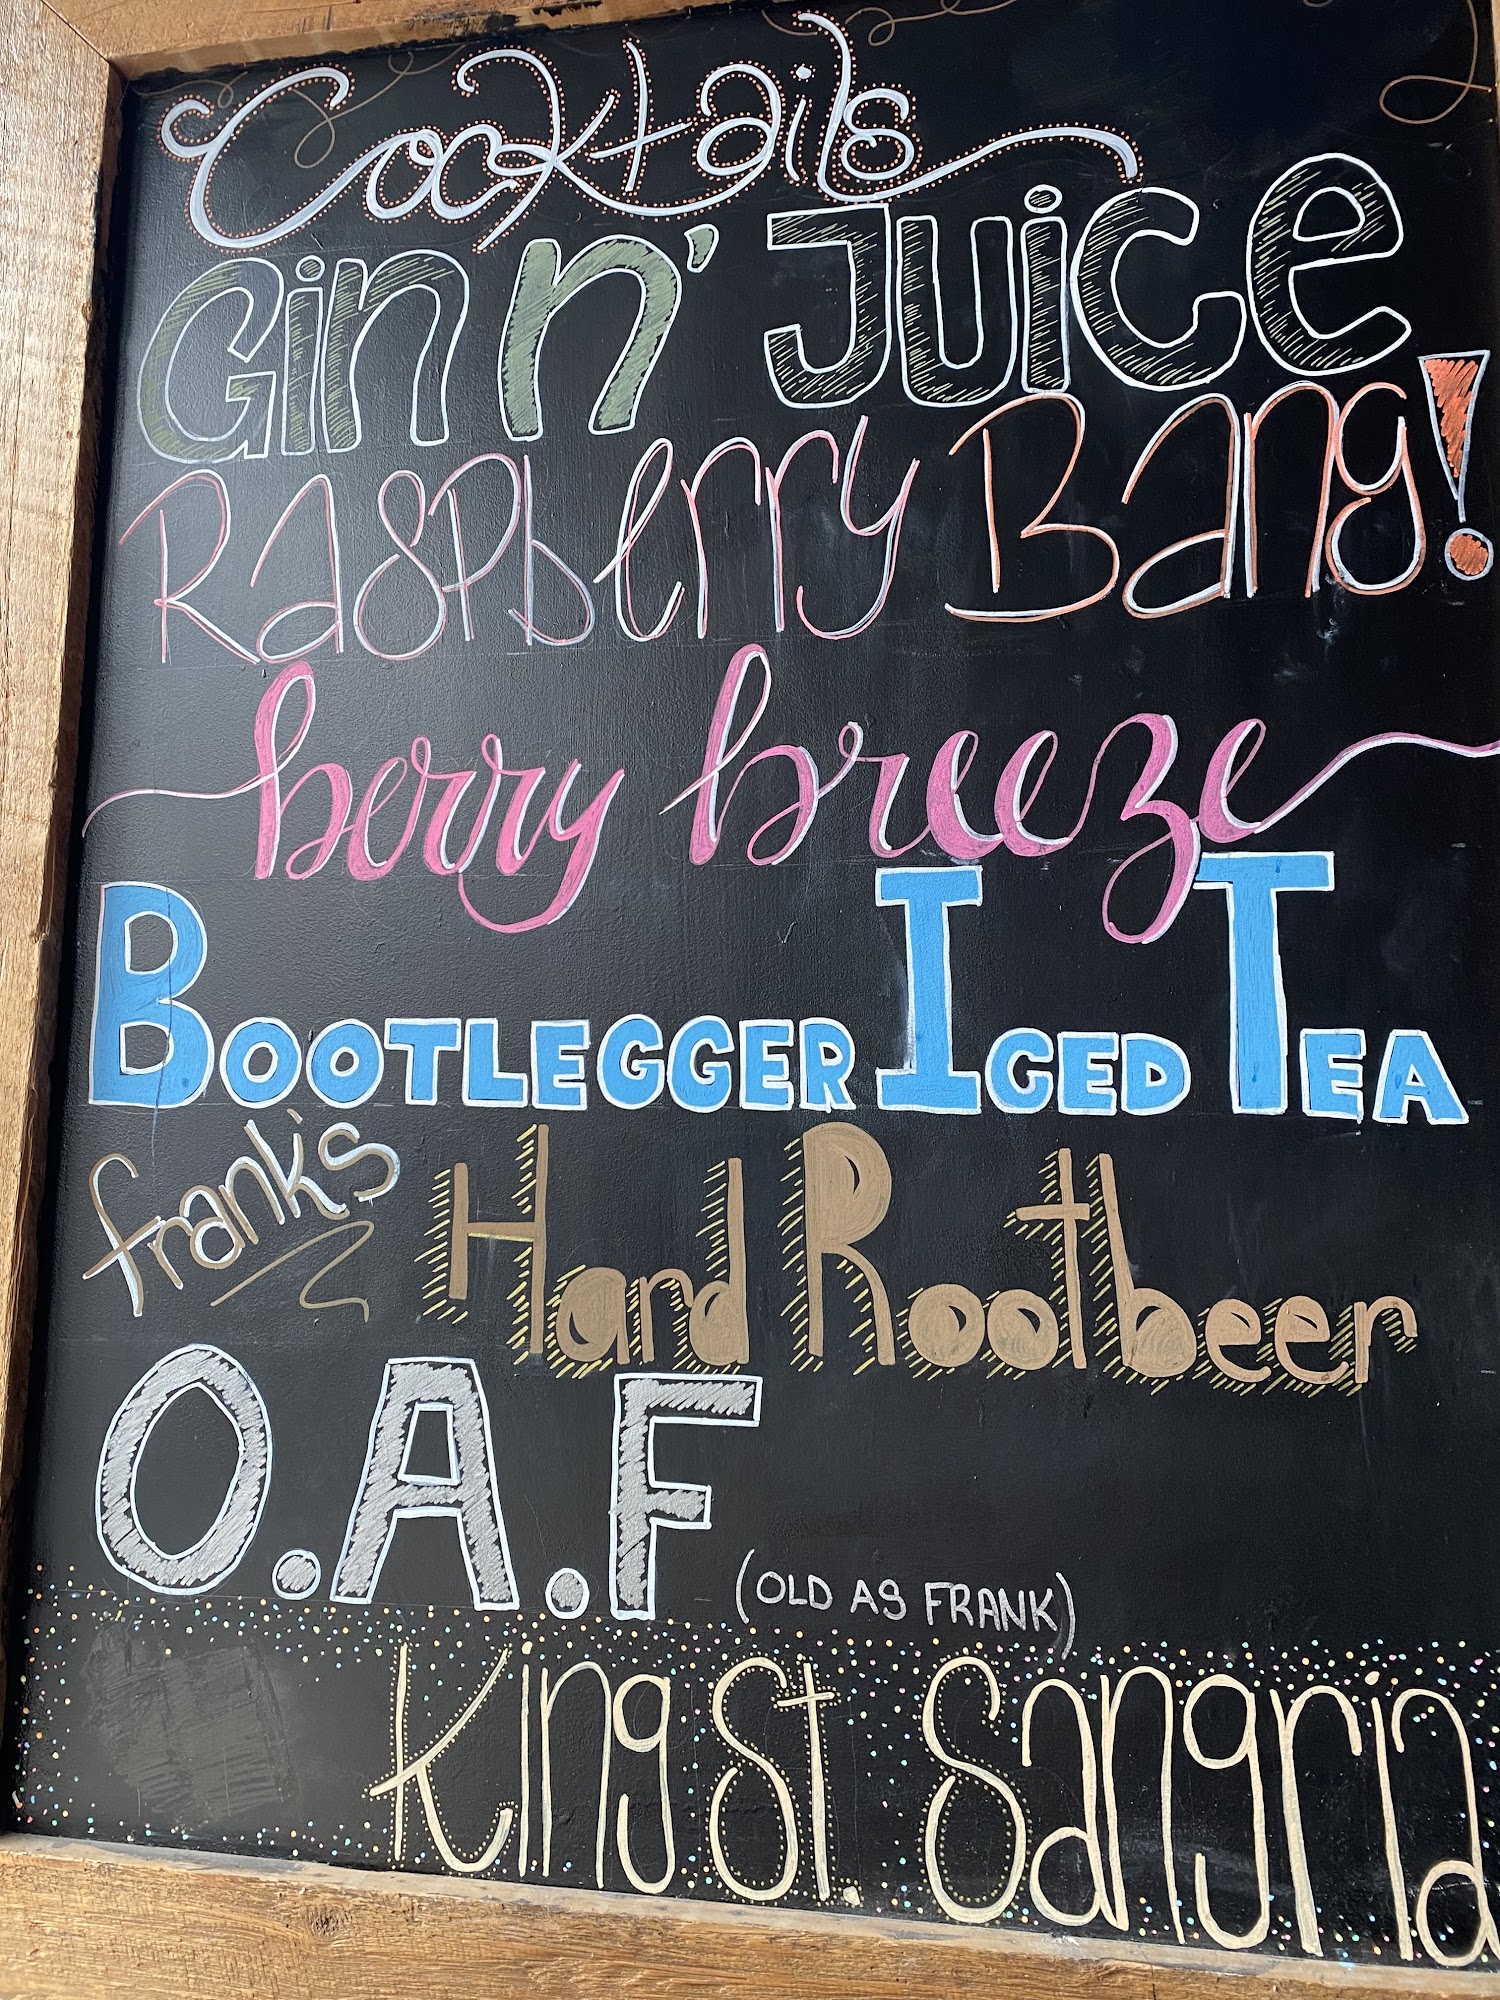 Cocktails
Gin n' Juice
Raspberry Bang!
berry breeze
Bootlegger Iced Tea
frank's Hard Rootbeer
O.A.F (OLD AS FRANK)
King St. Sangria